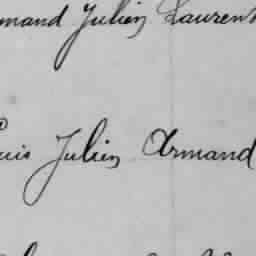 mand Julien Laurent
uis Julien Armand